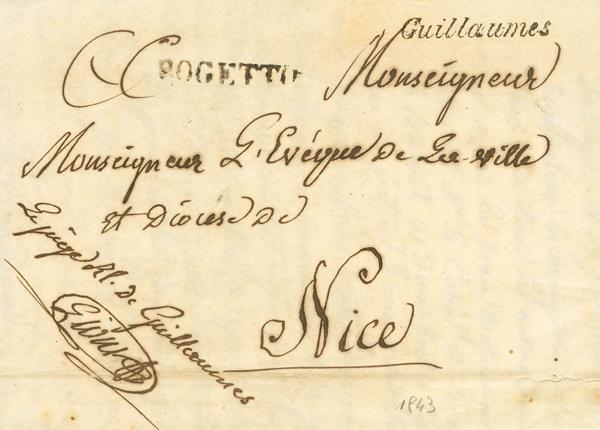 Guillaumes
SOGETTO
Monseigneur
Monseigneur L'Evéque de La ville
et Diocese De
Nice
Le juge de Guillaumes
1843